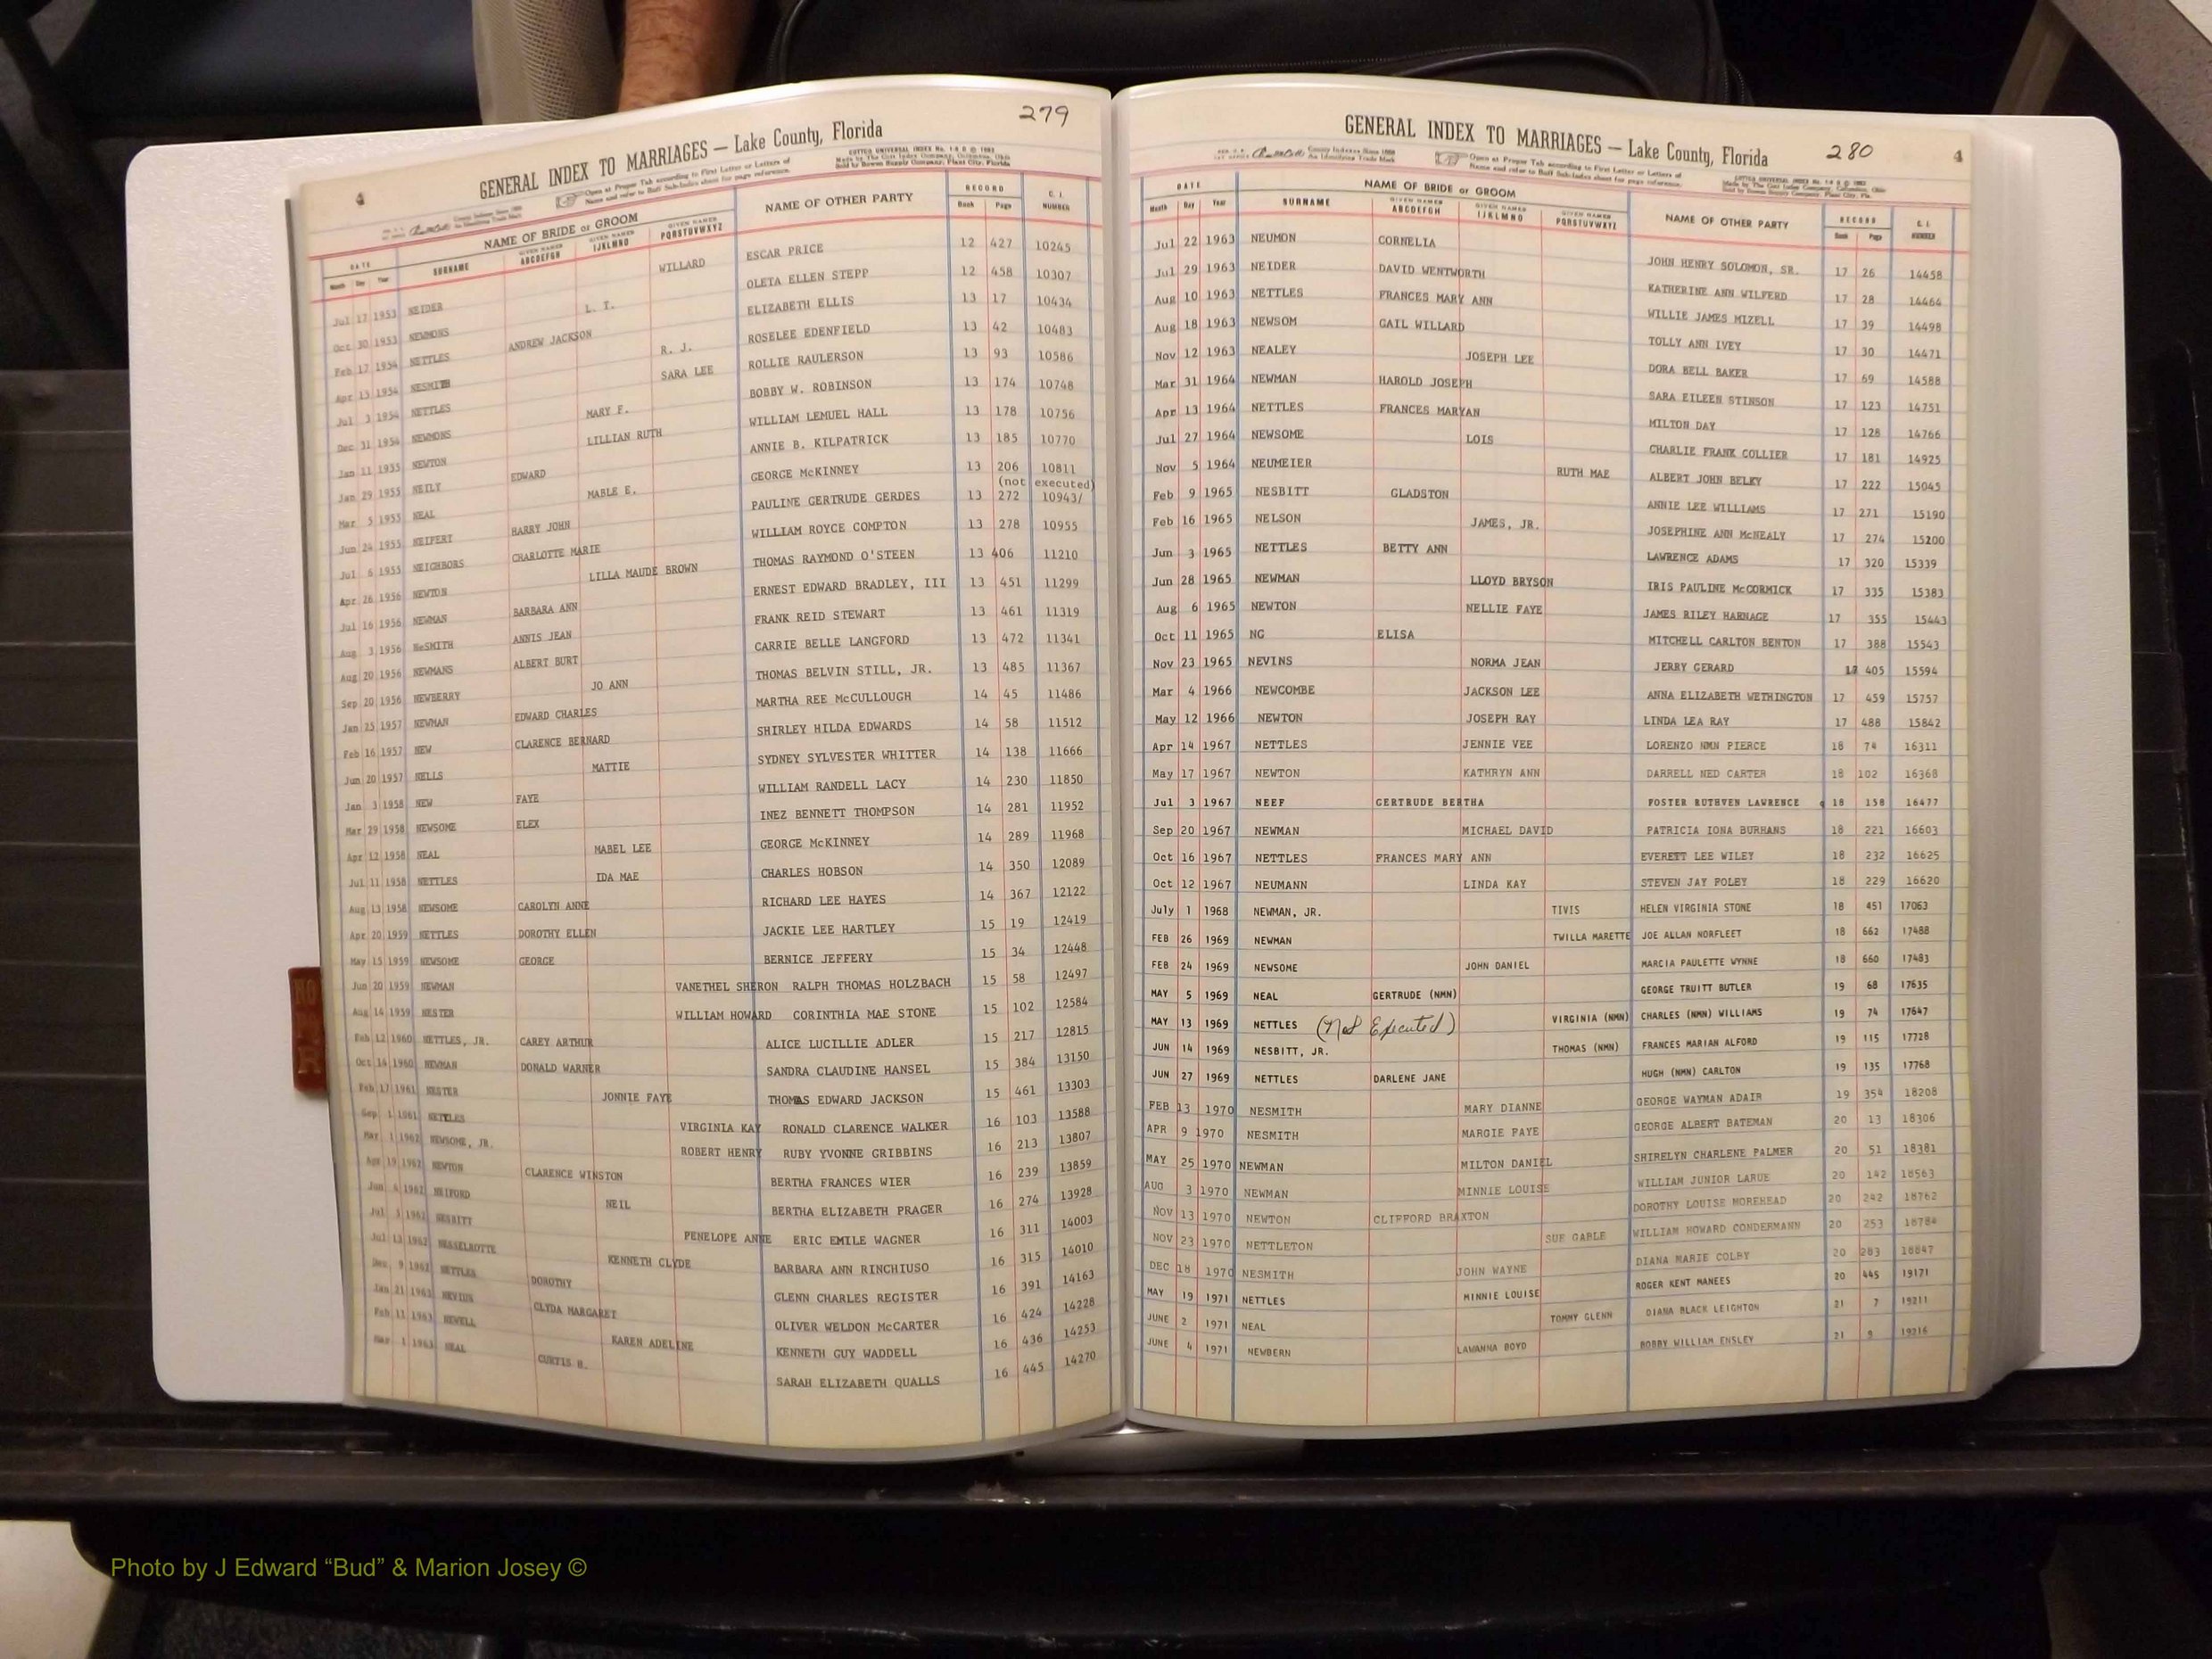 279
4
GENERAL INDEX TO MARRIAGES — Lake County, Florida
Open at Proper Tab according to First Letter or Letters of
Name and refer to Buff Sub-Index sheet for page reference.
DATE NAME OF BRIDE or GROOM NAME OF OTHER PARTY RECORD C. I. NUMBER
Month Day Year SURNAME GIVEN NAMES ABCDEFGH GIVEN NAMES IJKLMNO GIVEN NAMES PQRSTUVWXYZ Book Page
Jul 17 1953 NEIDER WILLARD ESCAR PRICE 12 427 10245
Oct 30 1953 NEWMONS L. T. OLETA ELLEN STEPP 12 458 10307
Feb 17 1954 NETTLES ANDREW JACKSON ELIZABETH ELLIS 13 17 10434
Apr 13 1954 NESMITH R. J. ROSELEE EDENFIELD 13 42 10483
Jul 3 1954 NETTLES SARA LEE ROLLIE RAULERSON 13 93 10586
Dec 31 1954 NEWMONS MARY F. BOBBY W. ROBINSON 13 174 10748
Jan 11 1955 NEWTON LILLIAN RUTH WILLIAM LEMUEL HALL 13 178 10756
Jan 29 1955 NEILY EDWARD ANNIE B. KILPATRICK 13 185 10770
Mar 5 1955 NEAL MABLE E. GEORGE McKINNEY 13 206 10811
(not executed)
Jun 24 1955 NEIPERT HARRY JOHN PAULINE GERTRUDE GERDES 13 272 10943/
Jul 6 1955 NEIGHBORS CHARLOTTE MARIE WILLIAM ROYCE COMPTON 13 278 10955
Apr 26 1956 NEWTON LILLA MAUDE BROWN THOMAS RAYMOND O'STEEN 13 406 11210
Jul 16 1956 NEWMAN BARBARA ANN ERNEST EDWARD BRADLEY, III 13 451 11299
Aug 3 1956 NeSMITH ANNIS JEAN FRANK REID STEWART 13 461 11319
Aug 20 1956 NEWMANS ALBERT BURT CARRIE BELLE LANGFORD 13 472 11341
Sep 20 1956 NEWBERRY JO ANN THOMAS BELVIN STILL, JR. 13 485 11367
Jan 25 1957 NEWMAN EDWARD CHARLES MARTHA REE McCULLOUGH 14 45 11486
Feb 16 1957 NEW CLARENCE BERNARD SHIRLEY HILDA EDWARDS 14 58 11512
Jun 20 1957 NELLS MATTIE SYDNEY SYLVESTER WHITTER 14 138 11666
Jan 3 1958 NEW FAYE WILLIAM RANDELL LACY 14 230 11850
Mar 29 1958 NEWSOME ELEX INEZ BENNETT THOMPSON 14 281 11952
Apr 12 1958 NEAL MABEL LEE GEORGE McKINNEY 14 289 11968
Jul 11 1958 NETTLES IDA MAE CHARLES HOBSON 14 350 12089
Aug 13 1958 NEWSOME CAROLYN ANNE RICHARD LEE HAYES 14 367 12122
Apr 20 1959 NETTLES DOROTHY ELLEN JACKIE LEE HARTLEY 15 19 12419
May 15 1959 NEWSOME GEORGE BERNICE JEFFERY 15 34 12448
Jun 20 1959 NEWMAN VANETHEL SHERON RALPH THOMAS HOLZBACH 15 58 12497
Aug 14 1959 NESTER WILLIAM HOWARD CORINTHIA MAE STONE 15 102 12584
Feb 12 1960 NETTLES, JR. CAREY ARTHUR ALICE LUCILLIE ADLER 15 217 12815
Oct 14 1960 NEWMAN DONALD WARNER SANDRA CLAUDINE HANSEL 15 384 13150
Feb 17 1961 NESTER JONNIE FAYE THOMAS EDWARD JACKSON 15 461 13303
Sep 1 1961 NETTLES VIRGINIA KAY RONALD CLARENCE WALKER 16 103 13588
Mar 1 1962 NEWSOME, JR. ROBERT HENRY RUBY YVONNE GRIBBINS 16 213 13807
Apr 19 1962 NEWTON CLARENCE WINSTON BERTHA FRANCES WIER 16 239 13859
Jun 4 1962 NEIFORD NEIL BERTHA ELIZABETH PRAGER 16 274 13928
Jul 3 1962 NESBITT PENELOPE ANNE ERIC EMILE WAGNER 16 311 14003
Jul 13 1962 NESSELROTTE KENNETH CLYDE BARBARA ANN RINCHIUSO 16 315 14010
Dec 9 1962 NETTLES DOROTHY GLENN CHARLES REGISTER 16 391 14163
Jan 21 1963 NEVIUS CLYDA MARGARET OLIVER WELDON McCARTER 16 424 14228
Feb 11 1963 NEWELL KAREN ADELINE KENNETH GUY WADDELL 16 436 14253
Mar 1 1963 NEAL CURTIS H. SARAH ELIZABETH QUALLS 16 445 14270
280
4
GENERAL INDEX TO MARRIAGES — Lake County, Florida
Open at Proper Tab according to First Letter or Letters of
Name and refer to Buff Sub-Index sheet for page reference.
DATE NAME OF BRIDE or GROOM NAME OF OTHER PARTY RECORD C. I. NUMBER
Month Day Year SURNAME GIVEN NAMES ABCDEFGH GIVEN NAMES IJKLMNO GIVEN NAMES PQRSTUVWXYZ Book Page
Jul 22 1963 NEUMON CORNELIA JOHN HENRY SOLOMON, SR. 17 26 14458
Jul 29 1963 NEIDER DAVID WENTWORTH KATHERINE ANN WILFERD 17 28 14464
Aug 10 1963 NETTLES FRANCES MARY ANN WILLIE JAMES MIZELL 17 39 14498
Aug 18 1963 NEWSOM GAIL WILLARD TOLLY ANN IVEY 17 30 14471
Nov 12 1963 NEALEY JOSEPH LEE DORA BELL BAKER 17 69 14588
Mar 31 1964 NEWMAN HAROLD JOSEPH SARA EILEEN STINSON 17 123 14751
Apr 13 1964 NETTLES FRANCES MARYAN MILTON DAY 17 128 14766
Jul 27 1964 NEWSOME LOIS CHARLIE FRANK COLLIER 17 181 14925
Nov 5 1964 NEUMEIER RUTH MAE ALBERT JOHN BELKY 17 222 15045
Feb 9 1965 NESBITT GLADSTON ANNIE LEE WILLIAMS 17 271 15190
Feb 16 1965 NELSON JAMES, JR. JOSEPHINE ANN McNEALY 17 274 15200
Jun 3 1965 NETTLES BETTY ANN LAWRENCE ADAMS 17 320 15339
Jun 28 1965 NEWMAN LLOYD BRYSON IRIS PAULINE McCORMICK 17 335 15383
Aug 6 1965 NEWTON NELLIE FAYE JAMES RILEY HARNAGE 17 355 15443
Oct 11 1965 NG ELISA MITCHELL CARLTON BENTON 17 388 15543
Nov 23 1965 NEVINS NORMA JEAN JERRY GERARD 17 405 15594
Mar 4 1966 NEWCOMBE JACKSON LEE ANNA ELIZABETH WETHINGTON 17 459 15757
May 12 1966 NEWTON JOSEPH RAY LINDA LEA RAY 17 488 15842
Apr 14 1967 NETTLES JENNIE VEE LORENZO NMN PIERCE 18 74 16311
May 17 1967 NEWTON KATHRYN ANN DARRELL NED CARTER 18 102 16368
Jul 3 1967 NEEF GERTRUDE BERTHA FOSTER RUTHVEN LAWRENCE 18 158 16477
Sep 20 1967 NEWMAN MICHAEL DAVID PATRICIA IONA BURHANS 18 221 16603
Oct 16 1967 NETTLES FRANCES MARY ANN EVERETT LEE WILEY 18 232 16625
Oct 12 1967 NEUMANN LINDA KAY STEVEN JAY FOLEY 18 229 16620
July 1 1968 NEWMAN, JR. TIVIS HELEN VIRGINIA STONE 18 451 17063
FEB 26 1969 NEWMAN TWILLA MARETTE JOE ALLAN NORFLEET 18 662 17488
FEB 24 1969 NEWSOME JOHN DANIEL MARCIA PAULETTE WYNNE 18 660 17483
MAY 5 1969 NEAL GERTRUDE (NMN) GEORGE TRUITT BUTLER 19 68 17635
MAY 13 1969 NETTLES (Not Executed) VIRGINIA (NMN) CHARLES (NMN) WILLIAMS 19 74 17647
JUN 14 1969 NESBITT, JR. THOMAS (NMN) FRANCES MARIAN ALFORD 19 115 17728
JUN 27 1969 NETTLES DARLENE JANE HUGH (NMN) CARLTON 19 135 17768
FEB 13 1970 NESMITH MARY DIANNE GEORGE WAYMAN ADAIR 19 354 18208
APR 9 1970 NESMITH MARGIE FAYE GEORGE ALBERT BATEMAN 20 13 18306
MAY 25 1970 NEWMAN MILTON DANIEL SHIRELYN CHARLENE PALMER 20 51 18381
AUG 3 1970 NEWMAN MINNIE LOUISE WILLIAM JUNIOR LARUE 20 142 18563
NOV 13 1970 NEWTON CLIFFORD BRAXTON DOROTHY LOUISE MOREHEAD 20 242 18762
NOV 23 1970 NETTLETON SUE GABLE WILLIAM HOWARD CONDERMANN 20 253 18784
DEC 18 1970 NESMITH JOHN WAYNE DIANA MARIE COLBY 20 283 18847
MAY 19 1971 NETTLES MINNIE LOUISE ROGER KENT MANEES 20 445 19171
JUNE 2 1971 NEAL TOMMY GLENN DIANA BLACK LEIGHTON 21 7 19211
JUNE 4 1971 NEWBERN LAWANNA BOYD BOBBY WILLIAM ENSLEY 21 9 19216
Photo by J Edward “Bud” & Marion Josey ©